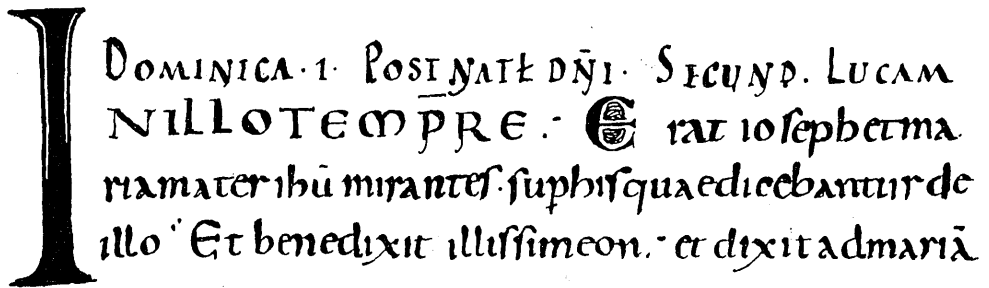 DOMINICA · I · POST NATŁ DN̄I · SECUND. LUCAM
IN ILLO TEMP̄RE .· Erat ioseph et ma
ria mater ihū mirantes · sup his quae dicebantur de
illo · Et benedixit illis simeon .· et dixit ad mariā